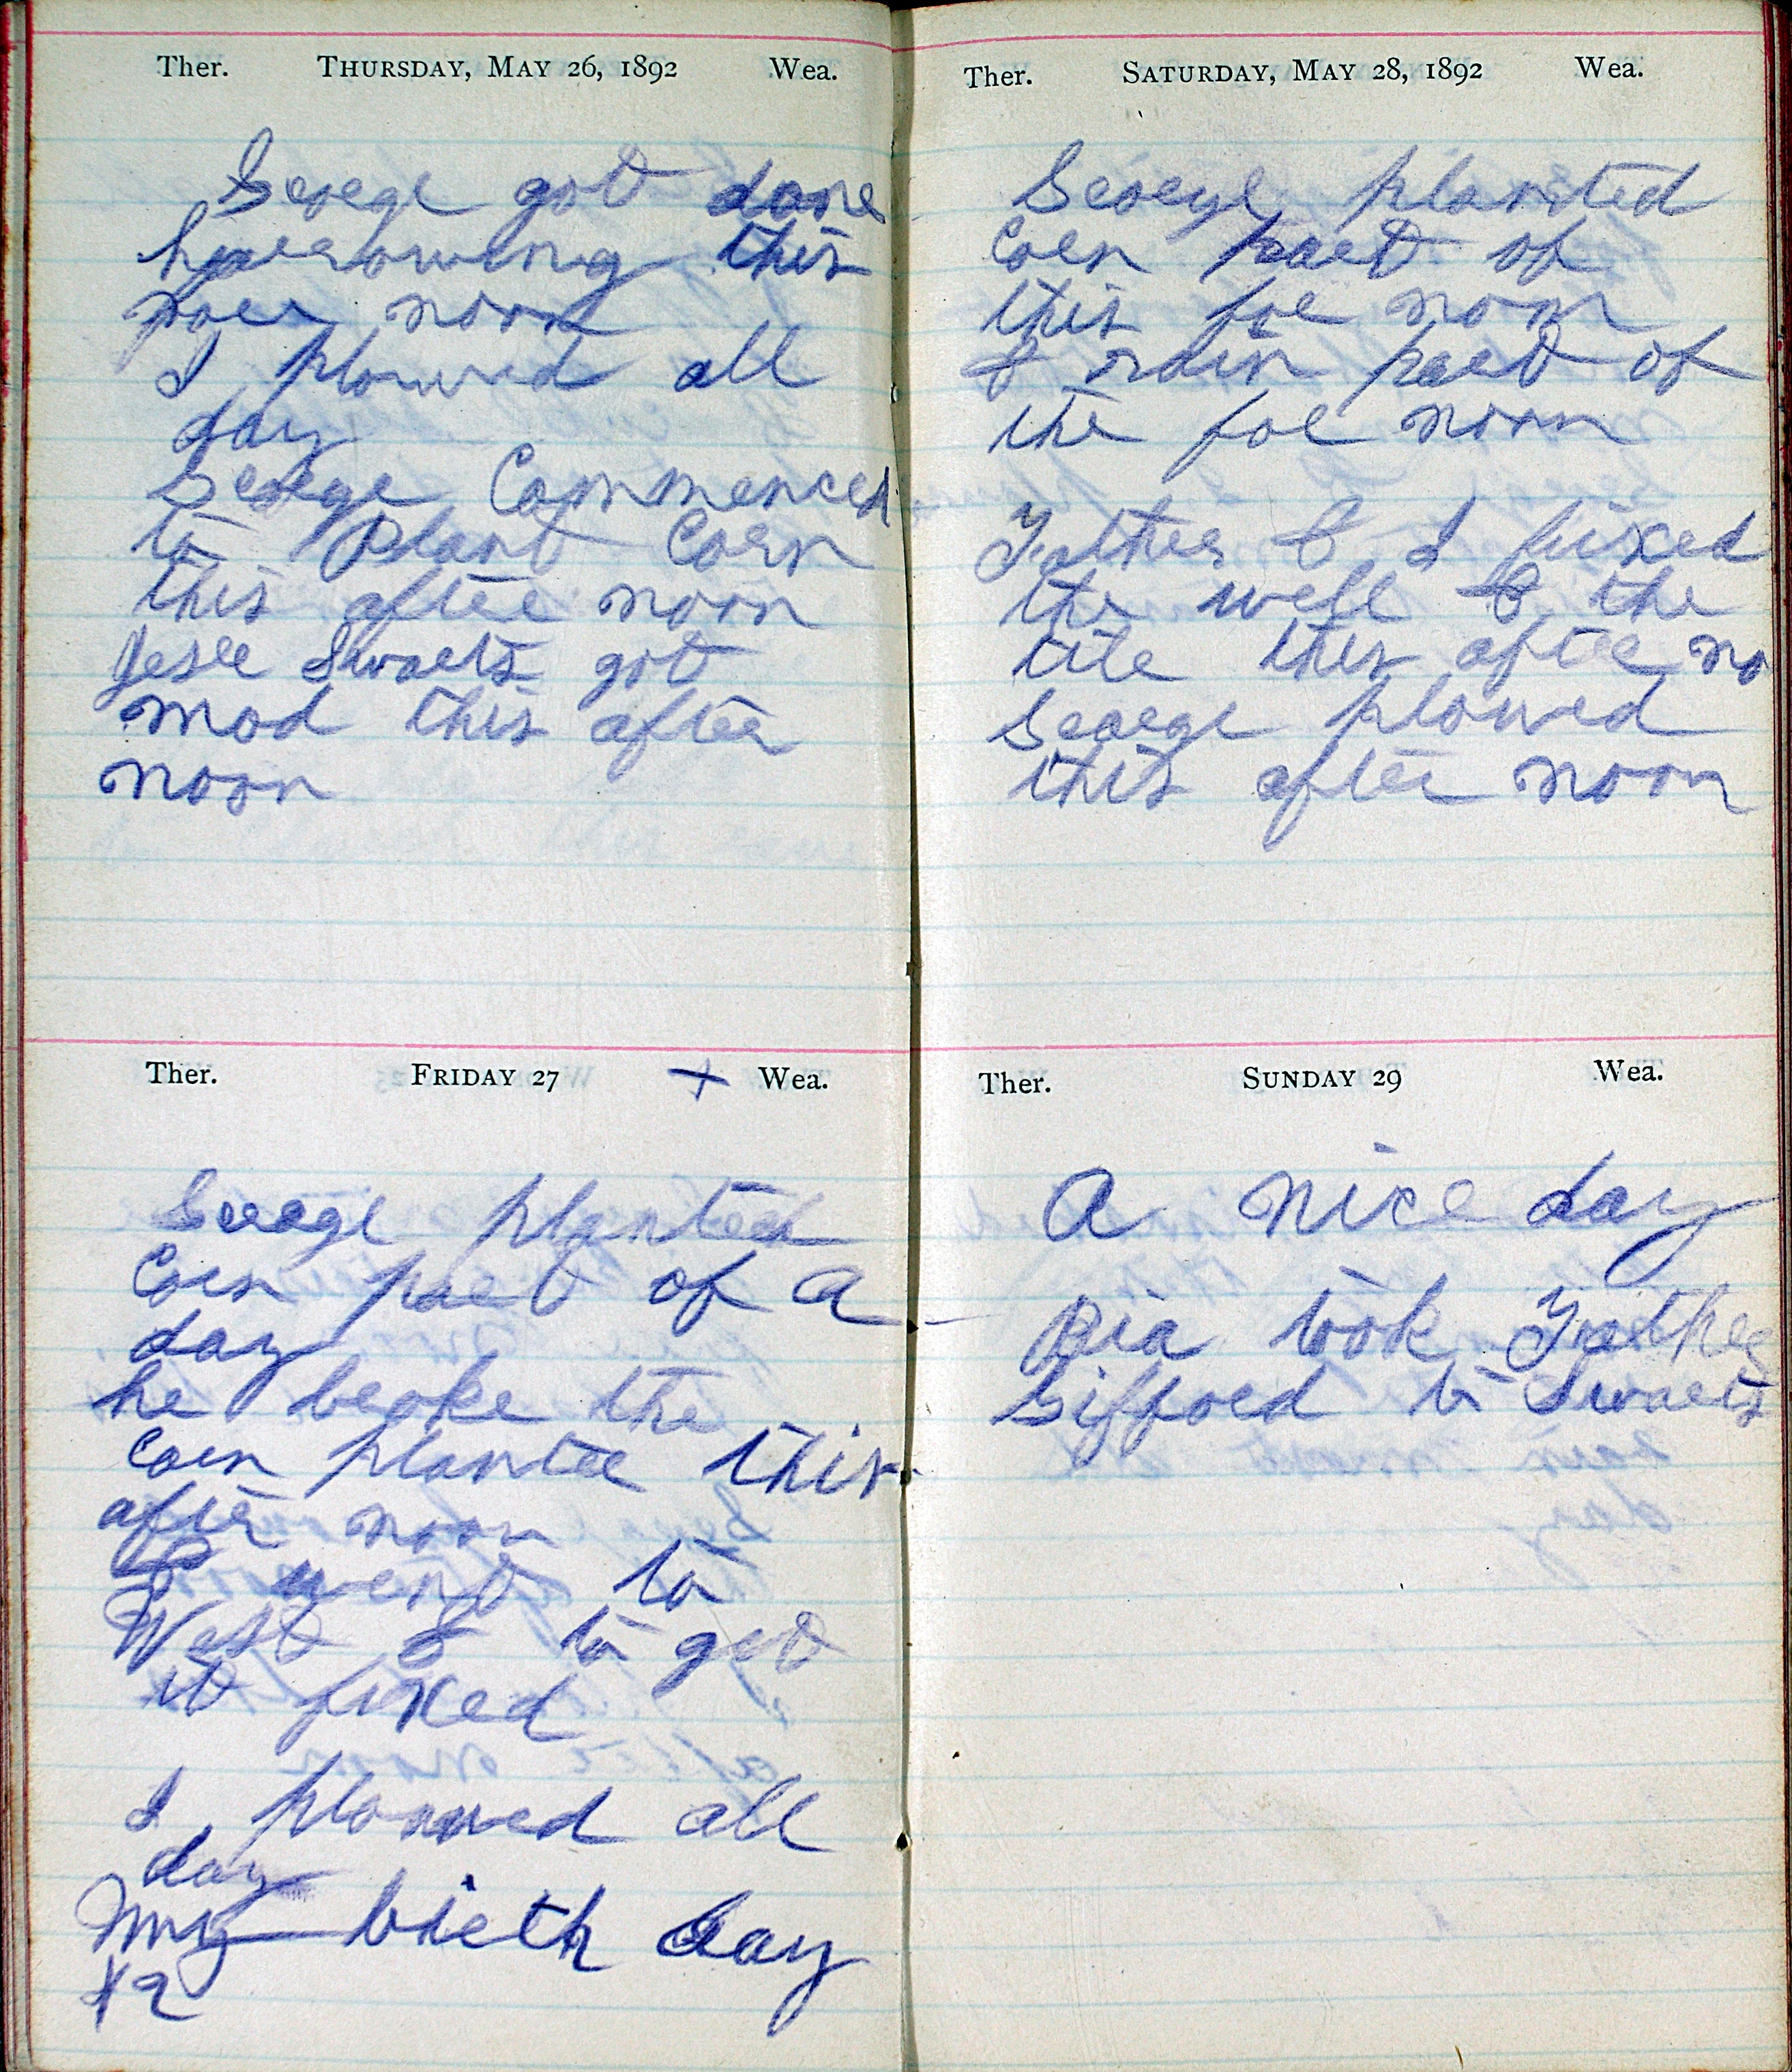 Ther. THURSDAY, MAY 26, 1892 Wea.
George got done
harrowing this
foer noon
I plowed all
day
George Commenced
to Plant Corn
this after noon
Jese Swarts got
mad this after
noon
Ther. FRIDAY 27 + Wea.
George planted
Corn part of a
day
he broke the
Corn planter this
after noon
& went to
West to get
it fixed
I plowed all
day
My birth day
Ther. SATURDAY, MAY 28, 1892 Wea.
George planted
Corn part of
this for noon
& rain part of
the for noon
Father & I fixed
the well & the
tile this after no
George plowed
this after noon
Ther. SUNDAY 29 Wea.
A nice day
Ria took Father
Gifford to Swarts